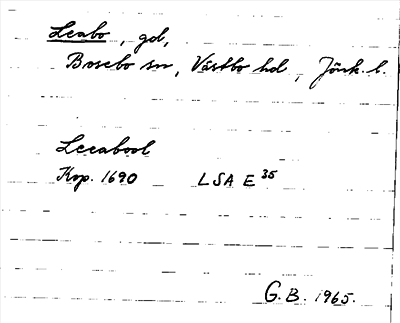 Leabo, gd,
Bosebo sn, Västbo hd, Jönk. l.
Leeabool
Kop. 1690 LSA E 35
G.B. 1965.